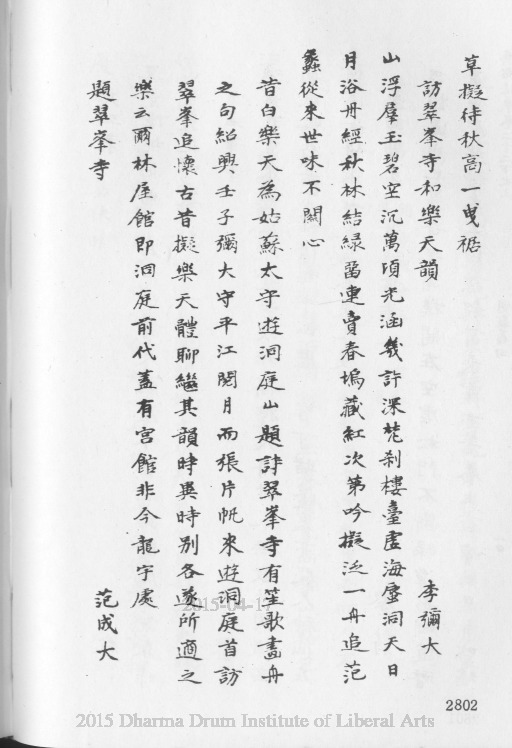 草擬待秋高一曳裾
訪翠峯寺和樂天韻 李彌大
山浮羣玉碧空沉萬頃光涵幾許深梵刹樓臺虛海蜃洞天日
月浴丹經秋林結綠留連賣春塢藏紅次第吟擬泛一舟追范
蠡從來世味不關心
昔白樂天為姑蘇太守遊洞庭山題詩翠峯寺有笙歌畫舟
之句紹興壬子彌大守平江閱月而張片帆來遊洞庭首訪
翠峯追懷古昔擬樂天體聊繼其韻時異時別各遂所適之
樂云爾林屋館即洞庭前代蓋有宮館非今龍宇處
題翠峯寺 范成大
2015-04-17
2802
2015 Dharma Drum Institute of Liberal Arts